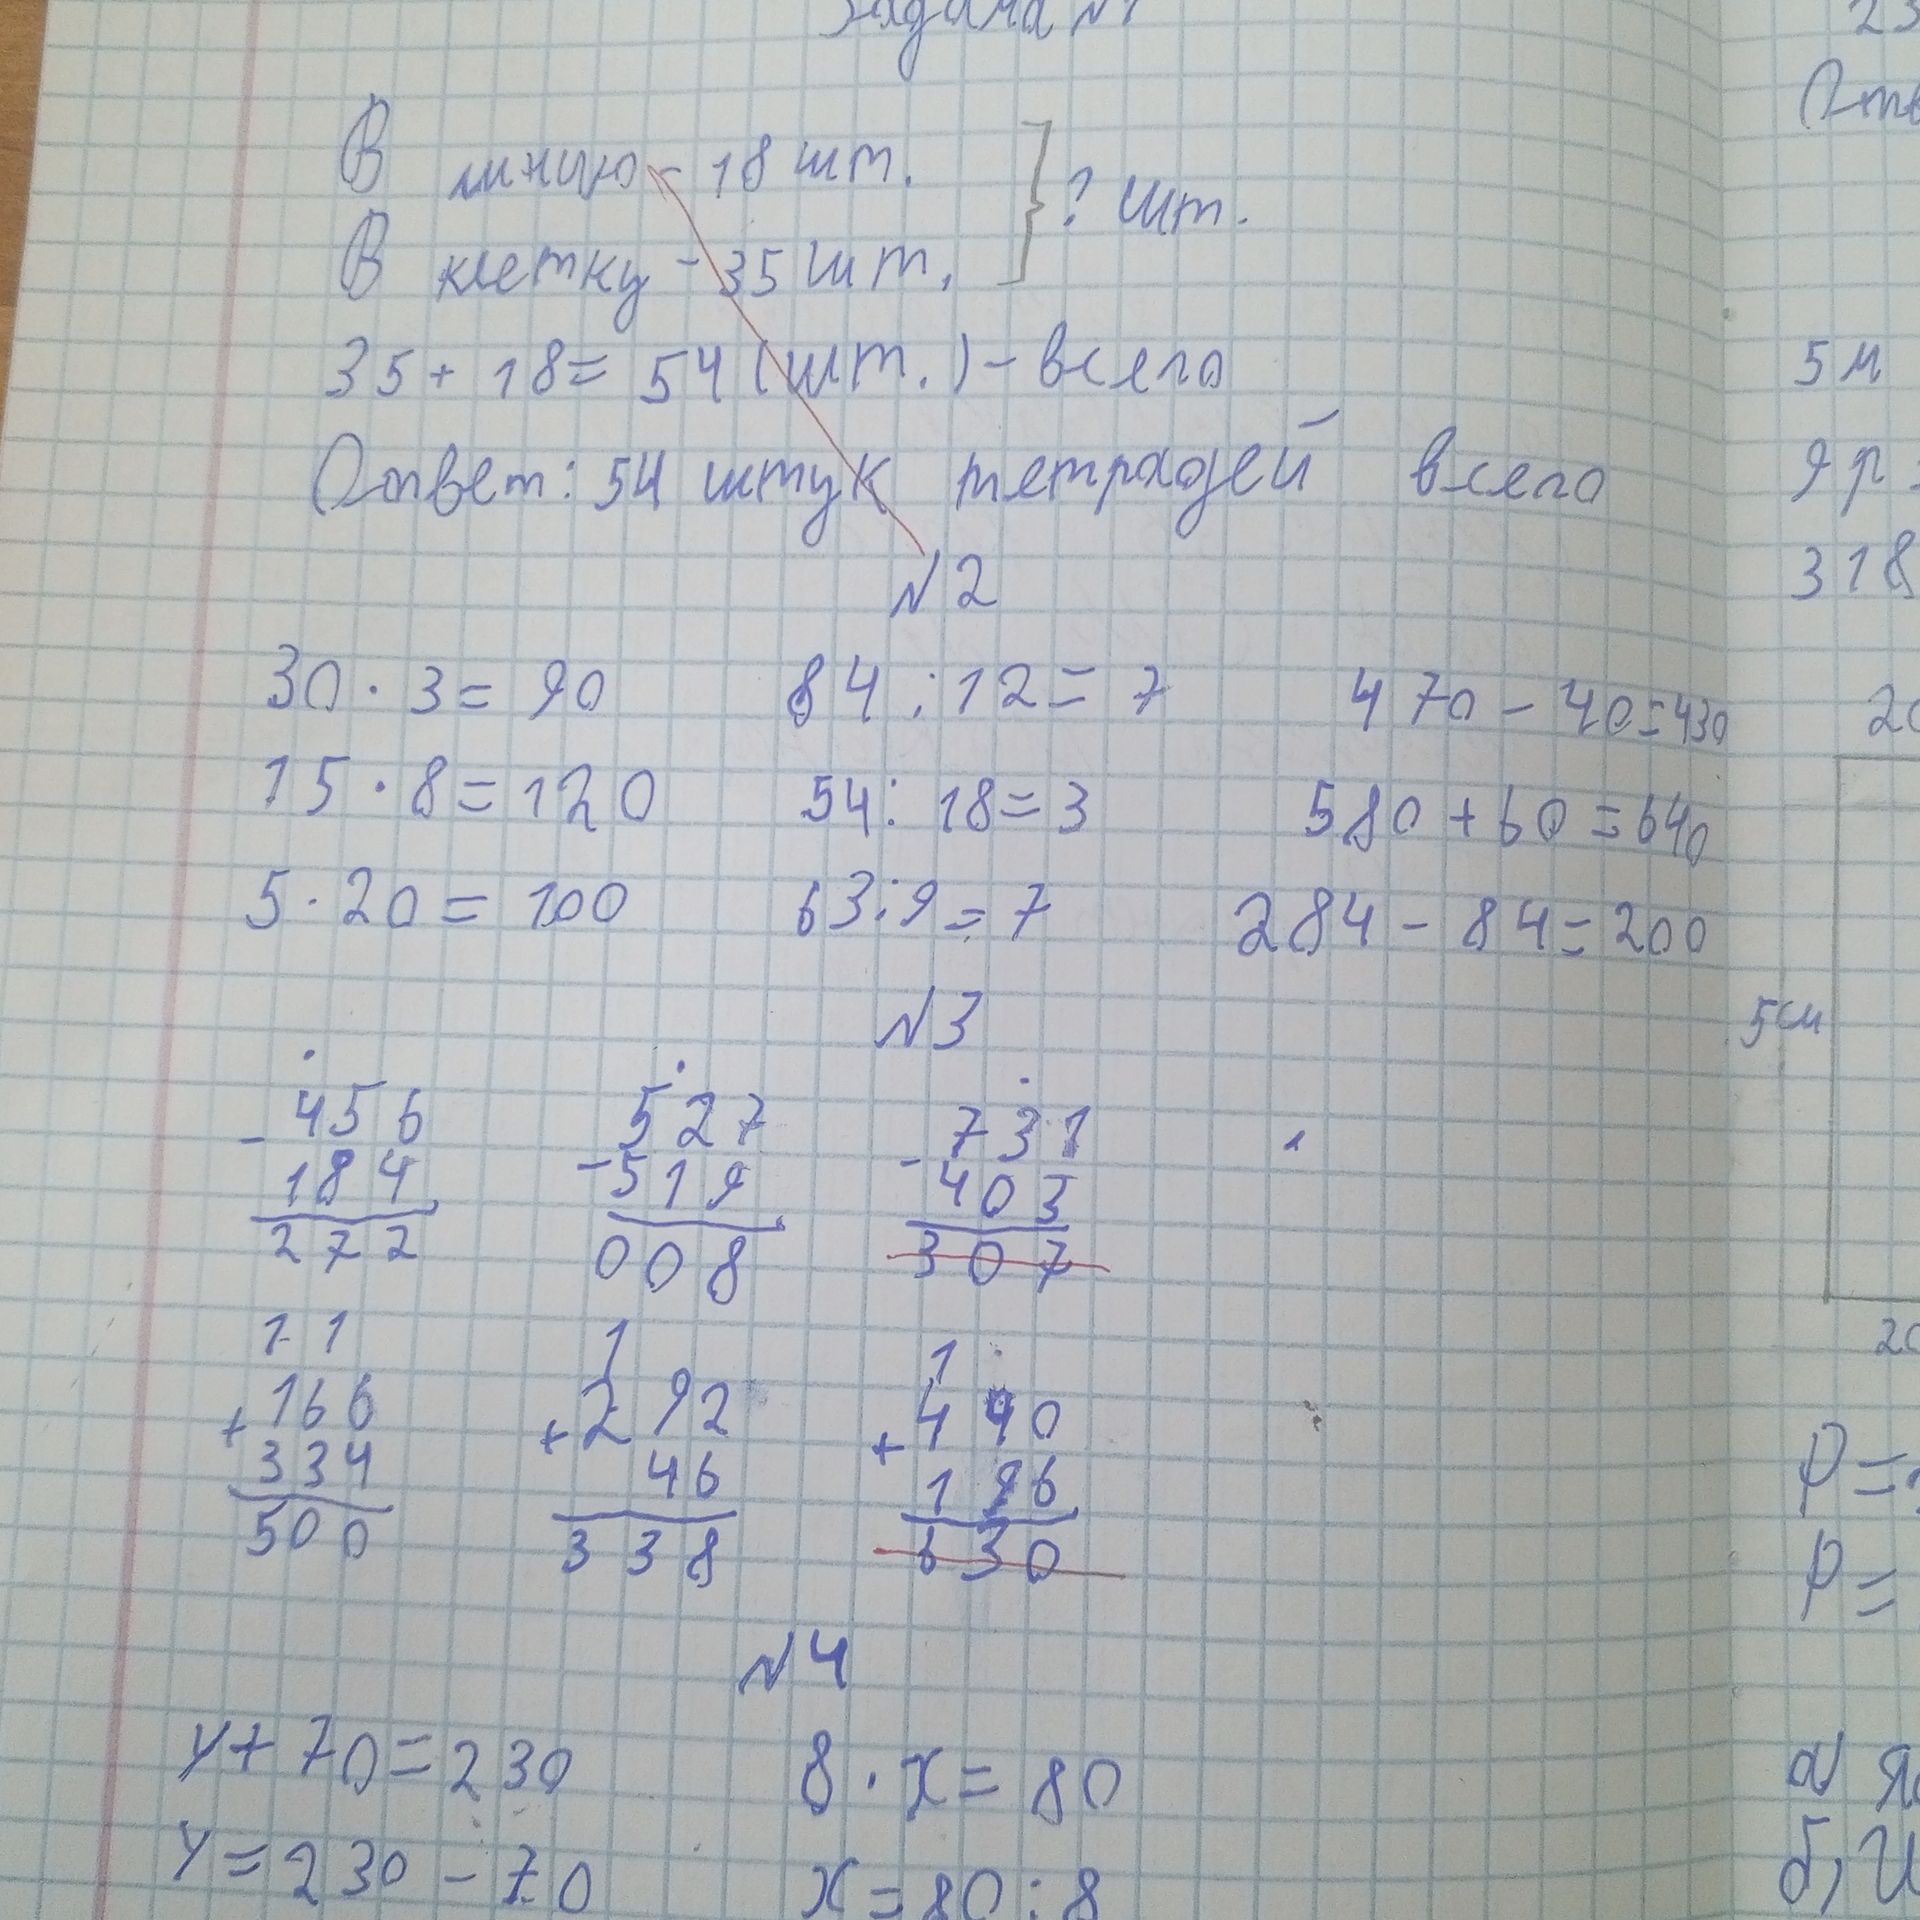 Задача №1
В линию - 18 шт.
В клетку - 35 шт.
} ? шт.
35 + 18 = 54 (шт.) - всего
Ответ: 54 штук тетрадей всего
№2
30 · 3 = 90 84 : 12 = 7 470 - 40 = 430
15 · 8 = 120 54 : 18 = 3 580 + 60 = 640
5 · 20 = 100 63 : 9 = 7 284 - 84 = 200
№3
- 456 - 527 - 731
184 519 403
272 008 307
1 1 1 1
+ 166 + 292 + 440
334 46 196
500 338 630
№4
y + 70 = 230 8 · x = 80
y = 230 - 70 x = 80 : 8
23
5 м
9 р
318
20
5 см
20
P =
P =
а)
б)